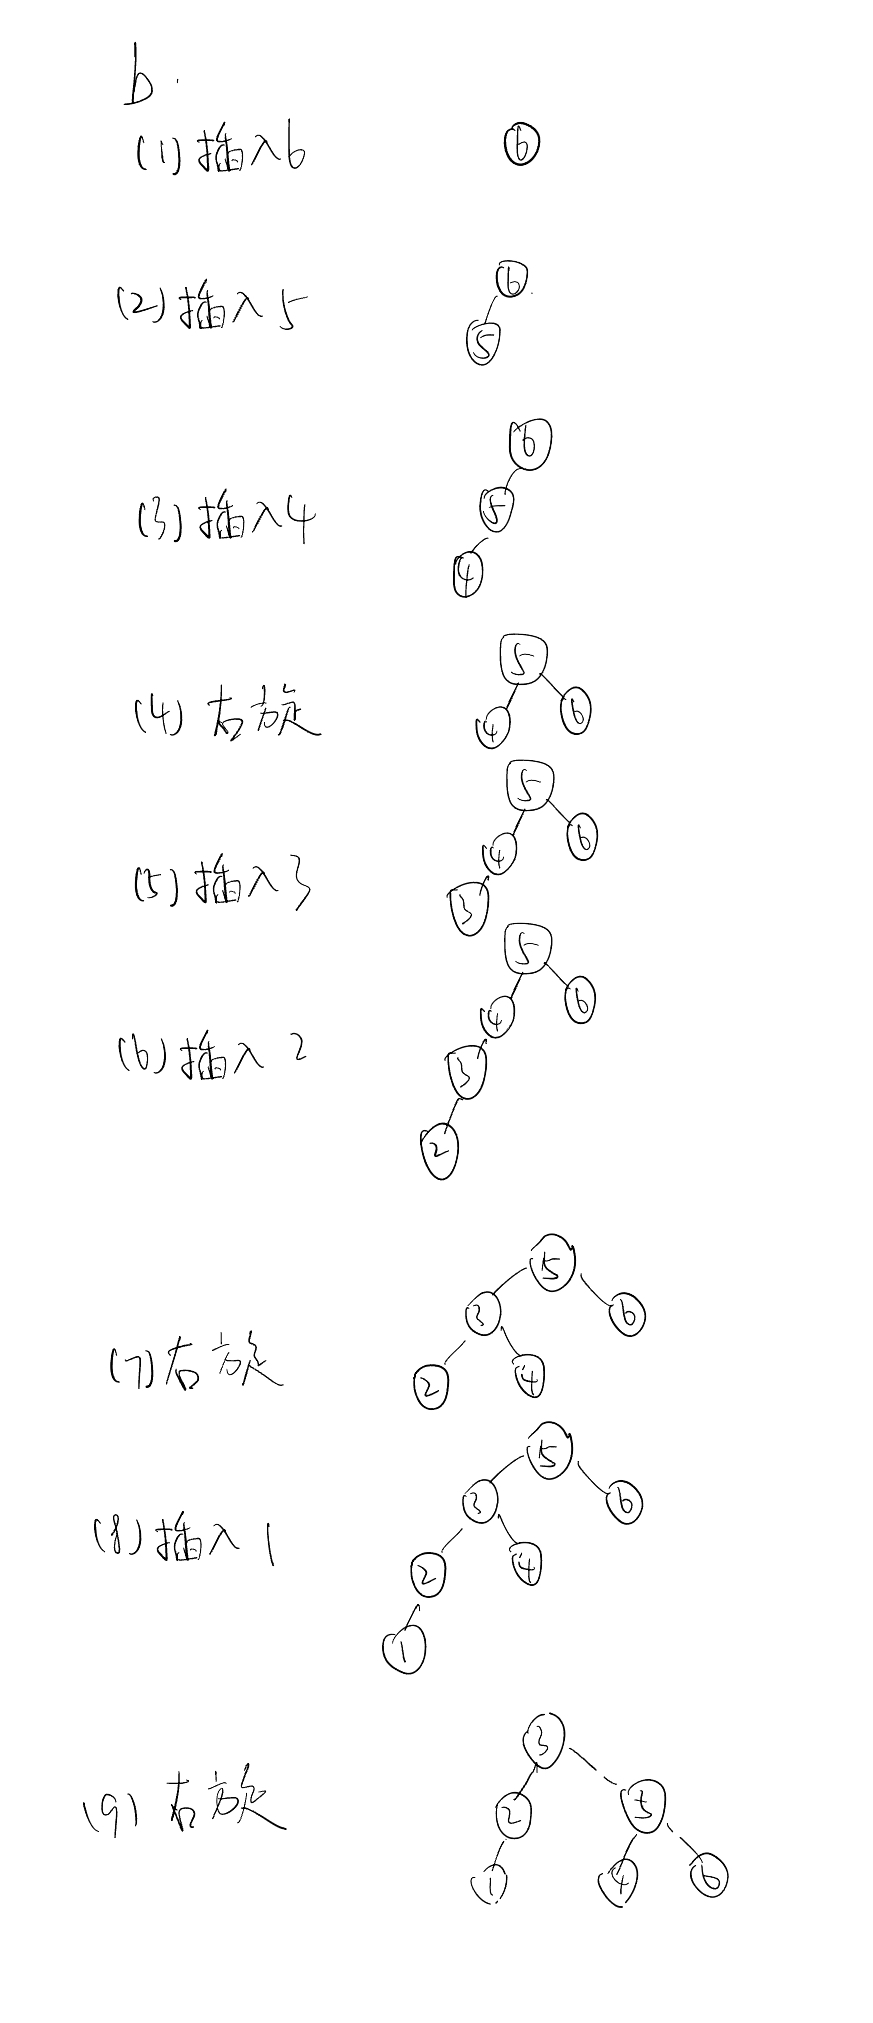 b.
(1) 插入6
6
(2) 插入5
6
5
(3) 插入4
6
5
4
(4) 右旋
5
4 6
(5) 插入3
5
4 6
3
(6) 插入2
5
4 6
3
2
(7) 右旋
5
3 6
2 4
(8) 插入1
5
3 6
2 4
1
(9) 右旋
3
2 5
1 4 6